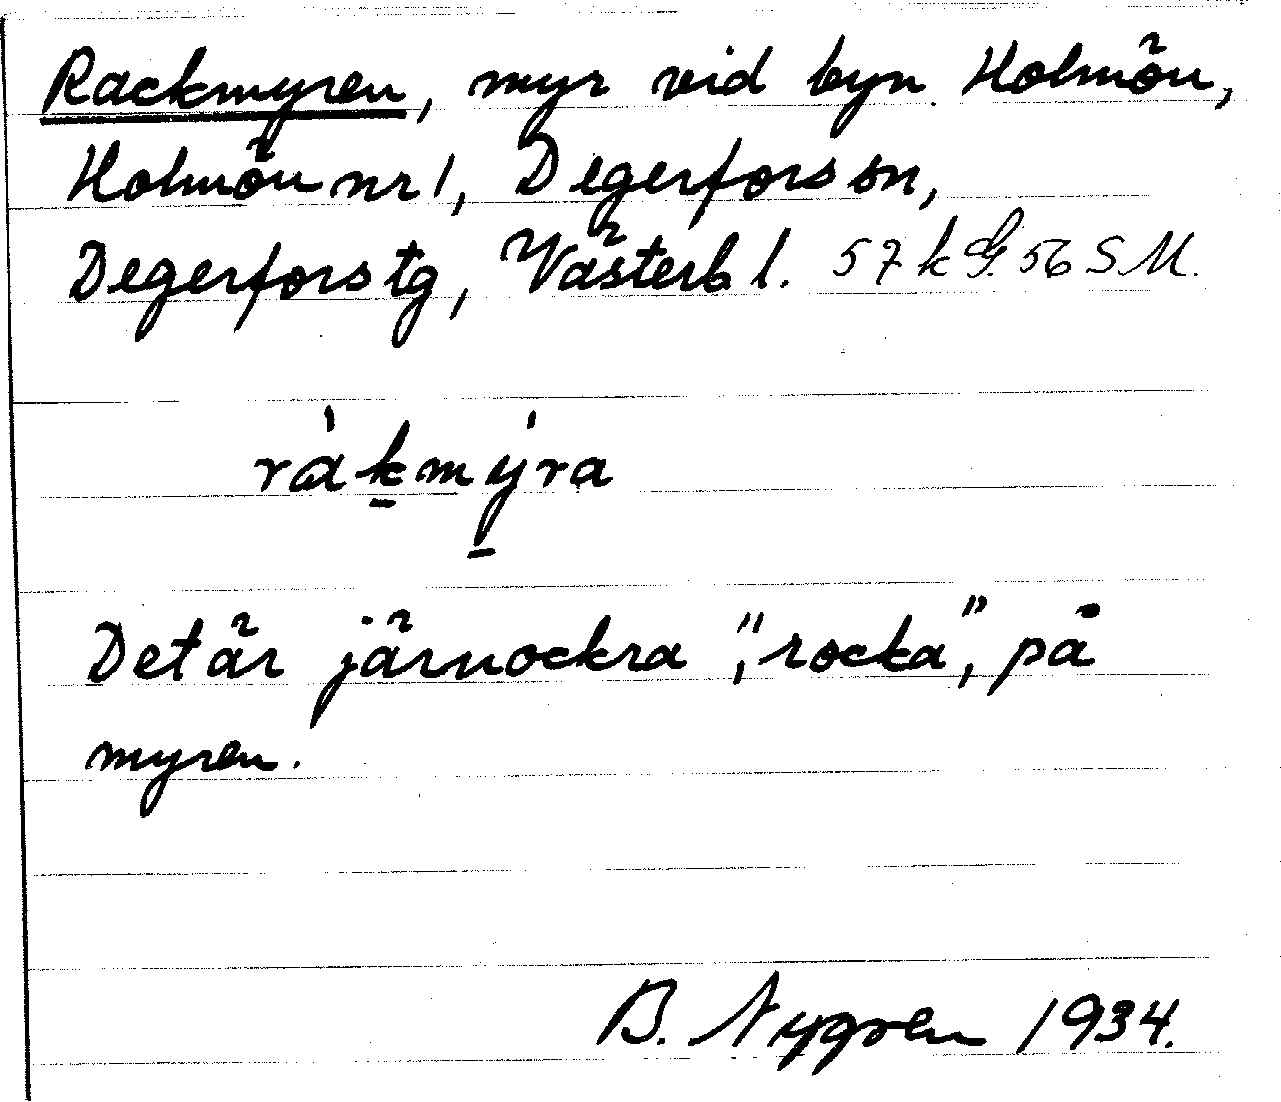 Rackmyren, myr vid byn Holmön,
Holmön nr 1, Degerfors sn,
Degerfors tg, Västerb l. 57 k G. 56 S M.
råkmýra
Det är järnockra, "rocka", på
myren.
B. Nygren 1934.